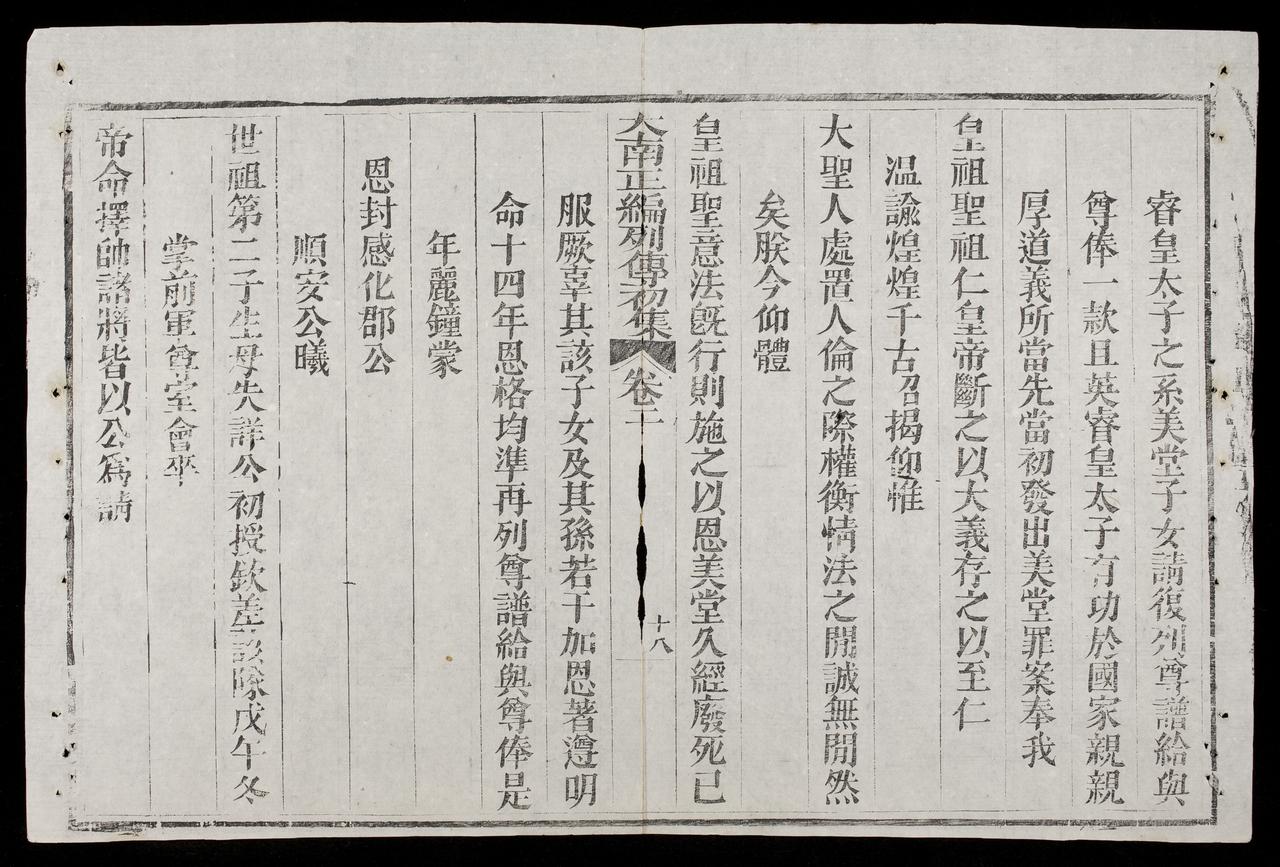 睿皇太子之系美堂子女請復列尊譜給與
尊俸一款且英睿皇太子有功於國家親親
厚道義所當先當初發出美堂罪案奉我
皇祖聖祖仁皇帝斷之以大義存之以至仁
温諭煌煌千古召揭仰惟
大聖人處置人倫之際權衡情法之閒誠無閒然
矣朕今仰體
皇祖聖意法旣行則施之以恩美堂久經廢死已
大南正編列傳初集 卷二 十八
服厥辜其該子女及其孫若干加恩著遵明
命十四年恩格均準再列尊譜給與尊俸是
年麗鐘蒙
恩封感化郡公
順安公曦
世祖第二子生母失詳公初授欽差該隊戊午冬
掌前軍尊室會卒
帝命擇帥諸將皆以公爲請